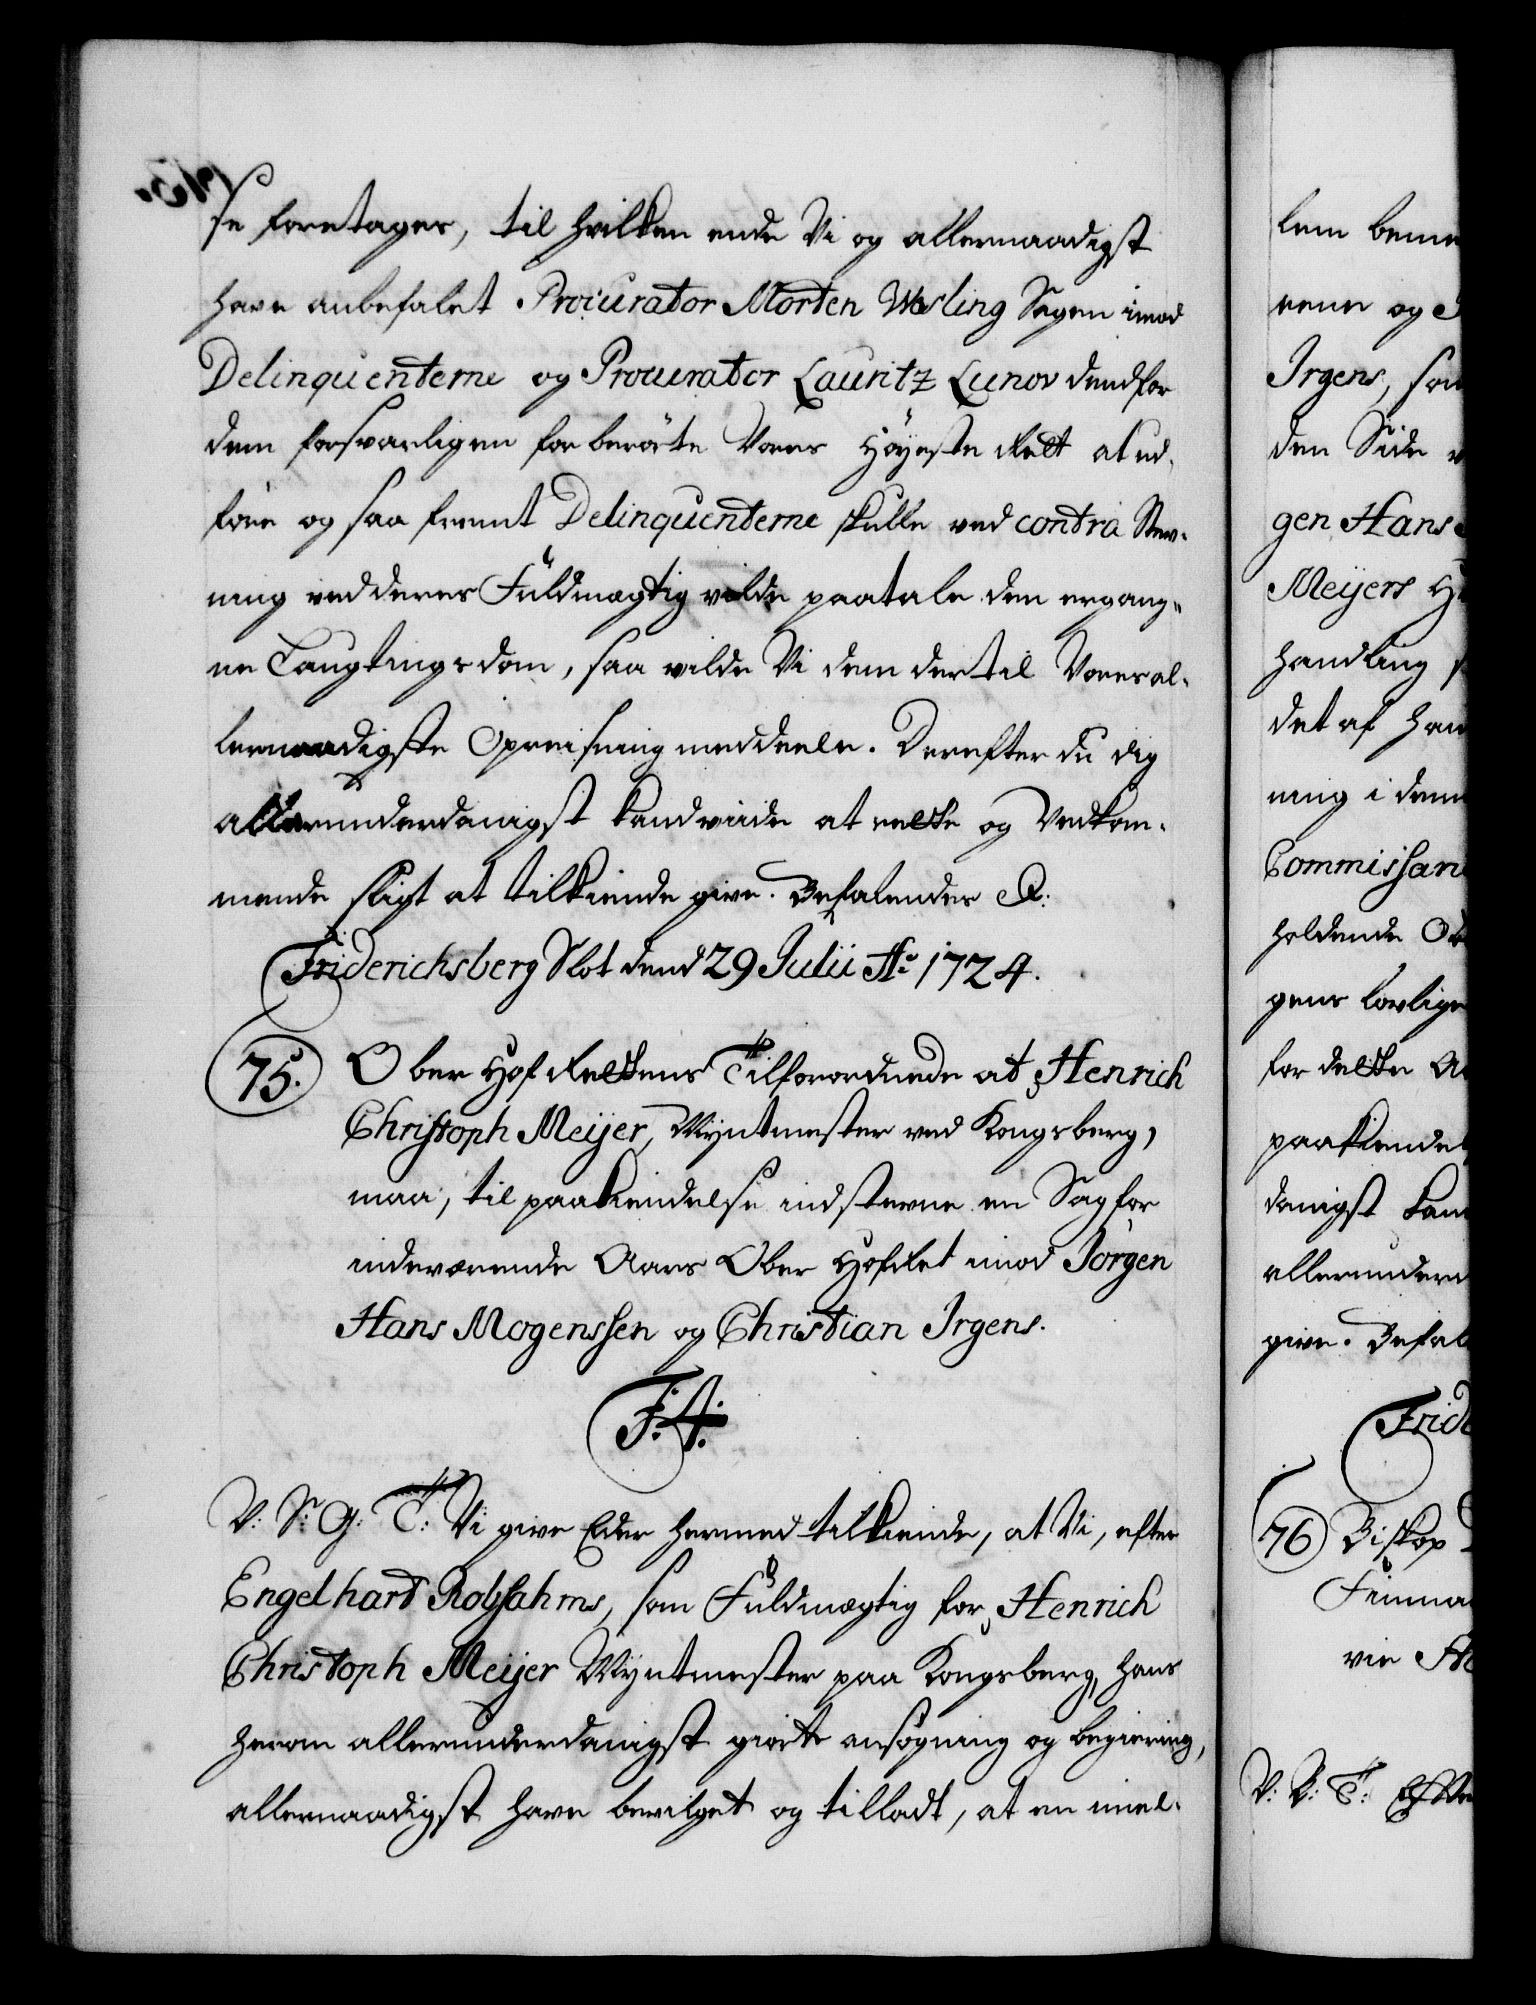 se foretages, til hvilken ende Vi og allernaadigst
have anbefalet Procurator Morten Wesling Sagen imod
Delinquenterne og Procurator Lauritz Lunov dend for
dem forsvarligen for berörte Vores Höyeste Rett at ud-
före og saa fremt Delinquenterne skulle ved contra Stev-
ning ved deres Fuldmægtig vilde paatale den ergang-
ne Laugtingsdom, saa vilde Vi dem dertil Vores al-
lernaadigste Opreisning meddeele. Derefter du dig
allerunderdanigst kand vide at rette og Vedkom-
mende sligt at tilkiende give. Befalendes &:
Friderichsberg Slot dend 29 Julii Ao 1724.
75. Ober Hof Rettens Tilforordnede at Henrich
Christoph Meijer, Myntmester ved Kongsberg,
maa, til paakiendelse indstevne en Sag for
indeværende Aars Ober Hofret imod Jörgen
Hans Mogenssen og Christian Irgens.
F: 4:
V: S: G: T: Vi give Eder hermed tilkiende, at Vi, efter
Engelhart Robsahms, som Fuldmægtig for Henrich
Christoph Meijer Myntmester paa Kongsberg, hans
herom allerunderdanigst giorte ansögning og begiering,
allernaadigst have bevilget og tilladt, at en imel-
lem beme
rener og J
Irgens, som
den Side
gen Hans
Meijers
handling
det af ham
ning i denn
Commissari
holdende
gens lovlige
for dette
paakiendel
danigst kan
allerunderd
give. Befal
Frid
76 Biskop
Finma
vie
V: S: T: